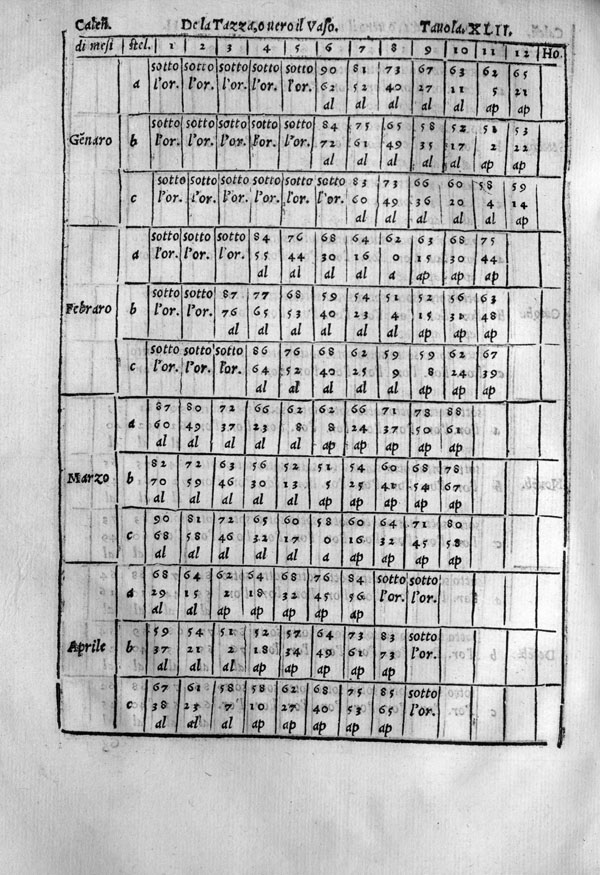 Calen̄. De la Tazza, overo il Vaso. Tavola. XLII.
di mesi stel. 1 2 3 4 5 6 7 8 9 10 11 12 Ho.
sotto sotto sotto sotto sotto 90 81 73 67 63 62 65
a l'or. l'or. l'or. l'or. l'or. 62 52 40 27 11 5 21
al al al al al ap ap
sotto sotto sotto sotto sotto 84 75 65 58 52 51 53
Gẽnaro b l'or. l'or. l'or. l'or. l'or. 72 61 49 35 17 2 22
al al al al al ap ap
sotto sotto sotto sotto sotto sotto 83 73 66 60 58 59
c l'or. l'or. l'or. l'or. l'or. l'or. 60 49 36 20 4 14
al al al al al ap
sotto sotto sotto 84 76 68 64 62 63 68 75
a l'or. l'or. l'or. 55 44 30 16 0 15 30 44
al al al al a ap ap ap
sotto sotto 87 77 68 59 54 51 52 56 63
Febraro b l'or. l'or. 76 65 53 40 23 4 15 31 48
al al al al al al ap ap ap
sotto sotto sotto 86 76 68 62 59 59 62 67
c l'or. l'or. l'or. 64 52 40 25 9 8 24 39
al al al al al ap ap ap
87 80 72 66 62 62 66 71 78 88
a 60 49 37 23 8 8 24 37 50 61
al al al al al ap ap ap ap ap
82 72 63 56 52 51 54 60 68 78
Marzo b 70 59 46 30 13 5 25 41 54 67
al al al al al ap ap ap ap ap
90 81 72 65 60 58 60 64 71 80
c 68 58 46 32 17 0 16 32 45 58
al al al al al a ap ap ap ap
68 64 62 64 68 76 84 sotto sotto
a 29 15 2 18 32 45 56 l'or. l'or.
al al ap ap ap ap ap
59 54 51 52 57 64 73 83 sotto
Aprile b 37 21 2 18 34 49 61 73 l'or.
al al al ap ap ap ap ap
67 61 58 58 62 68 75 85 sotto
c 38 23 7 10 27 40 53 65 l'or.
al al al ap ap ap ap ap